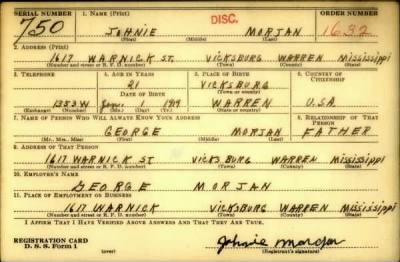 SERIAL NUMBER 1. NAME (Print) ORDER NUMBER
DISC.
750 JOHNIE MORJAN 1632
(First) (Middle) (Last)
2. ADDRESS (Print)
1617 WARNICK ST. VICKSBURG WARREN MISSISSIPPI
(Number and street or R. F. D. number) (Town) (County) (State)
3. TELEPHONE 4. AGE IN YEARS 5. PLACE OF BIRTH 6. COUNTRY OF CITIZENSHIP
21 VICKSBURG
DATE OF BIRTH (Town or county)
1353W Jan. 1 1919 WARREN U.S.A.
(Exchange) (Number) (Mo.) (Day) (Yr.) (State or country)
7. NAME OF PERSON WHO WILL ALWAYS KNOW YOUR ADDRESS 8. RELATIONSHIP OF THAT PERSON
GEORGE MORJAN FATHER
(Mr., Mrs., Miss) (First) (Middle) (Last)
9. ADDRESS OF THAT PERSON
1617 WARNICK ST VICKSBURG WARREN MISSISSIPPI
(Number and street or R. F. D. number) (Town) (County) (State)
10. EMPLOYER'S NAME
GEORGE MORJAN
11. PLACE OF EMPLOYMENT OR BUSINESS
1617 WARNICK VICKSBURG WARREN MISSISSIPPI
(Number and street or R. F. D. number) (Town) (County) (State)
I AFFIRM THAT I HAVE VERIFIED ABOVE ANSWERS AND THAT THEY ARE TRUE.
REGISTRATION CARD
D. S. S. Form 1 (over) Johnie Morjan
(Registrant's signature)